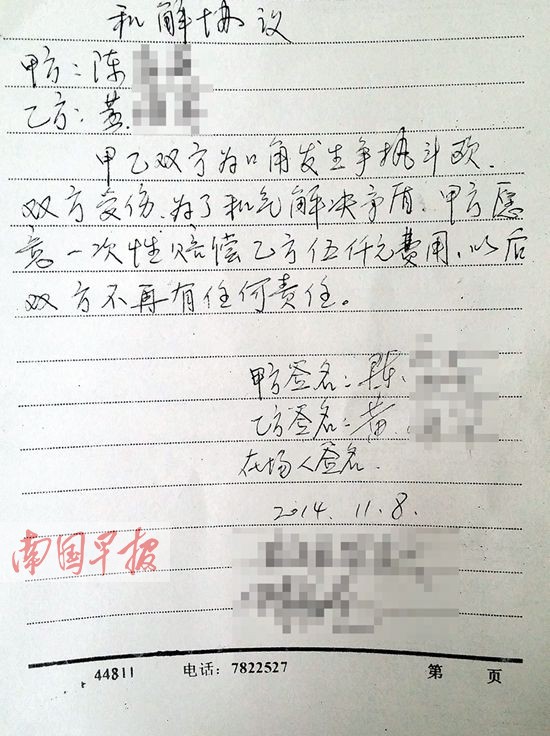 和解协议
甲方：陈
乙方：黄
甲乙双方为口角发生争执斗殴.
双方受伤.为了和气解决矛盾.甲方愿
意一次性赔偿乙方伍仟元费用.以后
双方不再有任何责任。
甲方签名：陈.
乙方签名：黄
在场人签名.
2014.11.8.
南国早报
44811 电话：7822527 第 页